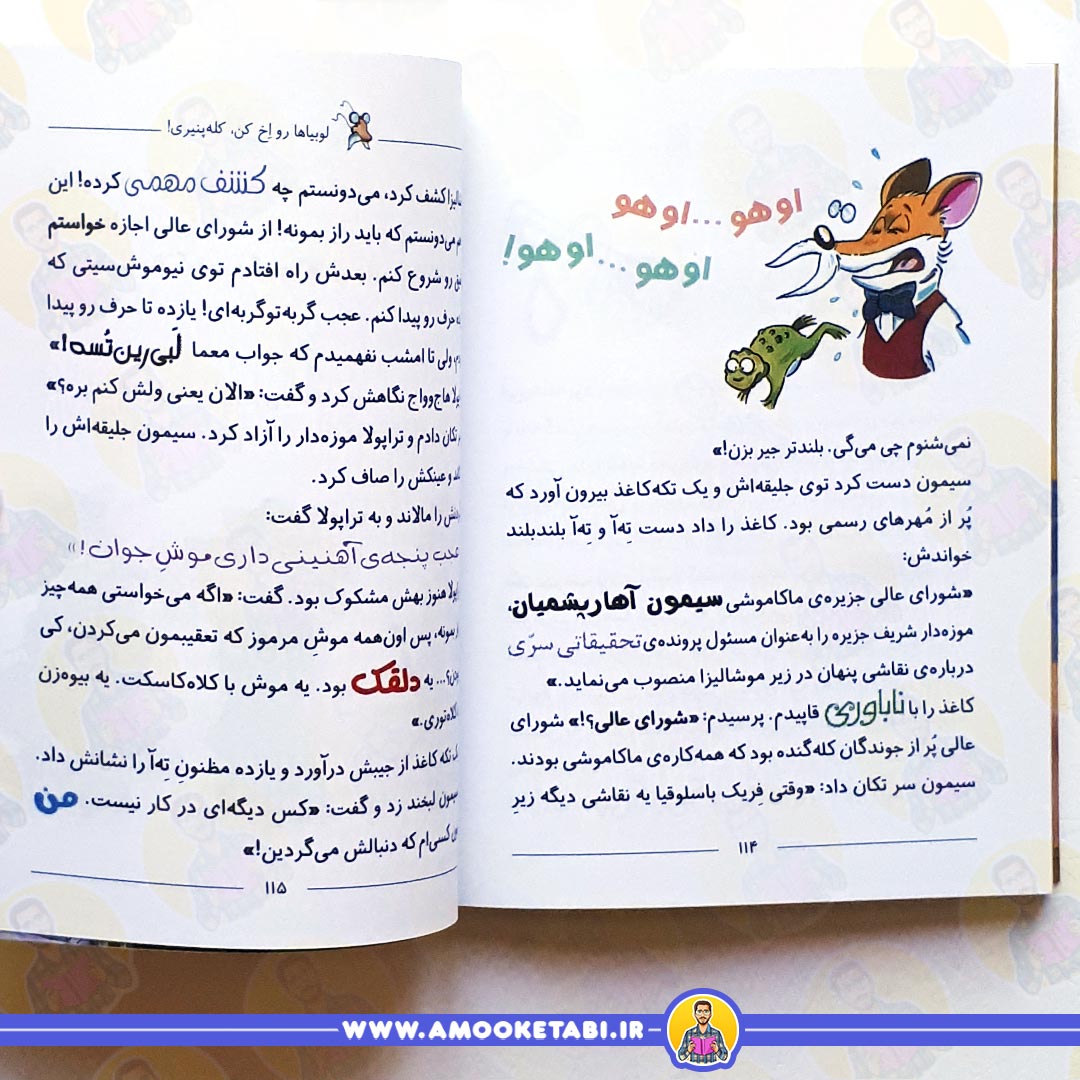 اوهو...اوهو
اوهو...اوهو!
نمی‌شنوم چی می‌گی. بلندتر جیر بزن!»
سیمون دست کرد توی جلیقه‌اش و یک تکه‌کاغذ بیرون آورد که
پُر از مُهرهای رسمی بود. کاغذ را داد دست تِه‌آ و تِه‌آ بلندبلند
خواندش:
«شورای عالی جزیره‌ی ماکاموشی سیمون آهارپشمیان،
موزه‌دار شریف جزیره را به‌عنوان مسئول پرونده‌ی تحقیقاتی سرّی
درباره‌ی نقاشی پنهان در زیر موشالیزا منصوب می‌نماید.»
کاغذ را با ناباوری قاپیدم. پرسیدم: «شورای عالی؟!» شورای
عالی پُر از جوندگان کله‌گنده بود که همه‌کاره‌ی ماکاموشی بودند.
سیمون سر تکان داد: «وقتی فِریک باسلوقیا یه نقاشی دیگه زیرِ
۱۱۴
لوبیاها رو اِخ کن، کله‌پنیری!
کشف کرد، می‌دونستم چه کشف مهمی کرده! این
می‌دونستم که باید راز بمونه! از شورای عالی اجازه خواستم
رو شروع کنم. بعدش راه افتادم توی نیوموش‌سیتی که
حرف رو پیدا کنم. عجب گربه‌توگربه‌ای! یازده تا حرف رو پیدا
ولی تا امشب نفهمیدم که جواب معما لَبی‌رین‌تُسه!»
هاج‌وواج نگاهش کرد و گفت: «الان یعنی ولش کنم بره؟»
تکان دادم و تراپولا موزه‌دار را آزاد کرد. سیمون جلیقه‌اش را
و عینکش را صاف کرد.
را مالاند و به تراپولا گفت:
عجب پنجه‌ی آهنینی داری موشِ جوان!»
هنوز بهش مشکوک بود. گفت: «اگه می‌خواستی همه‌چیز
بمونه، پس اون‌همه موشِ مرموز که تعقیبمون می‌کردن، کی
یه دلقک بود. یه موش با کلاه‌کاسکت. یه بیوه‌زن
کلاه‌توری.»
تکه کاغذ از جیبش درآورد و یازده مظنونِ تِه‌آ را نشانش داد.
سیمون لبخند زد و گفت: «کس دیگه‌ای در کار نیست. من
کسی‌ام که دنبالش می‌گردین!»
۱۱۵
WWW.AMOOKETABI.IR